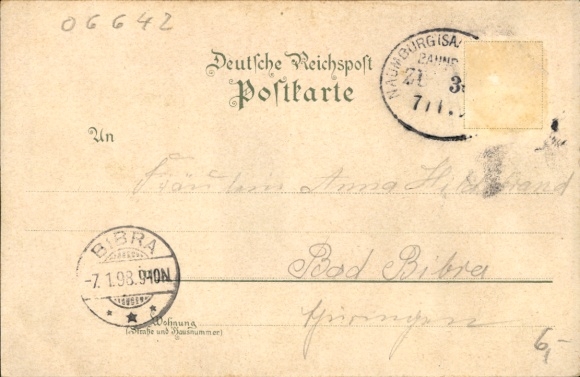 06642
Deutsche Reichspost
Postkarte
NAUMBURG (SA
BAHNP
ZU
7 1
An
Fräulein Anna
Bad Bibra
Thüringen
BIBRA
-7.1.98.9-10N
Wohnung
(Straße und Hausnummer)
6,-